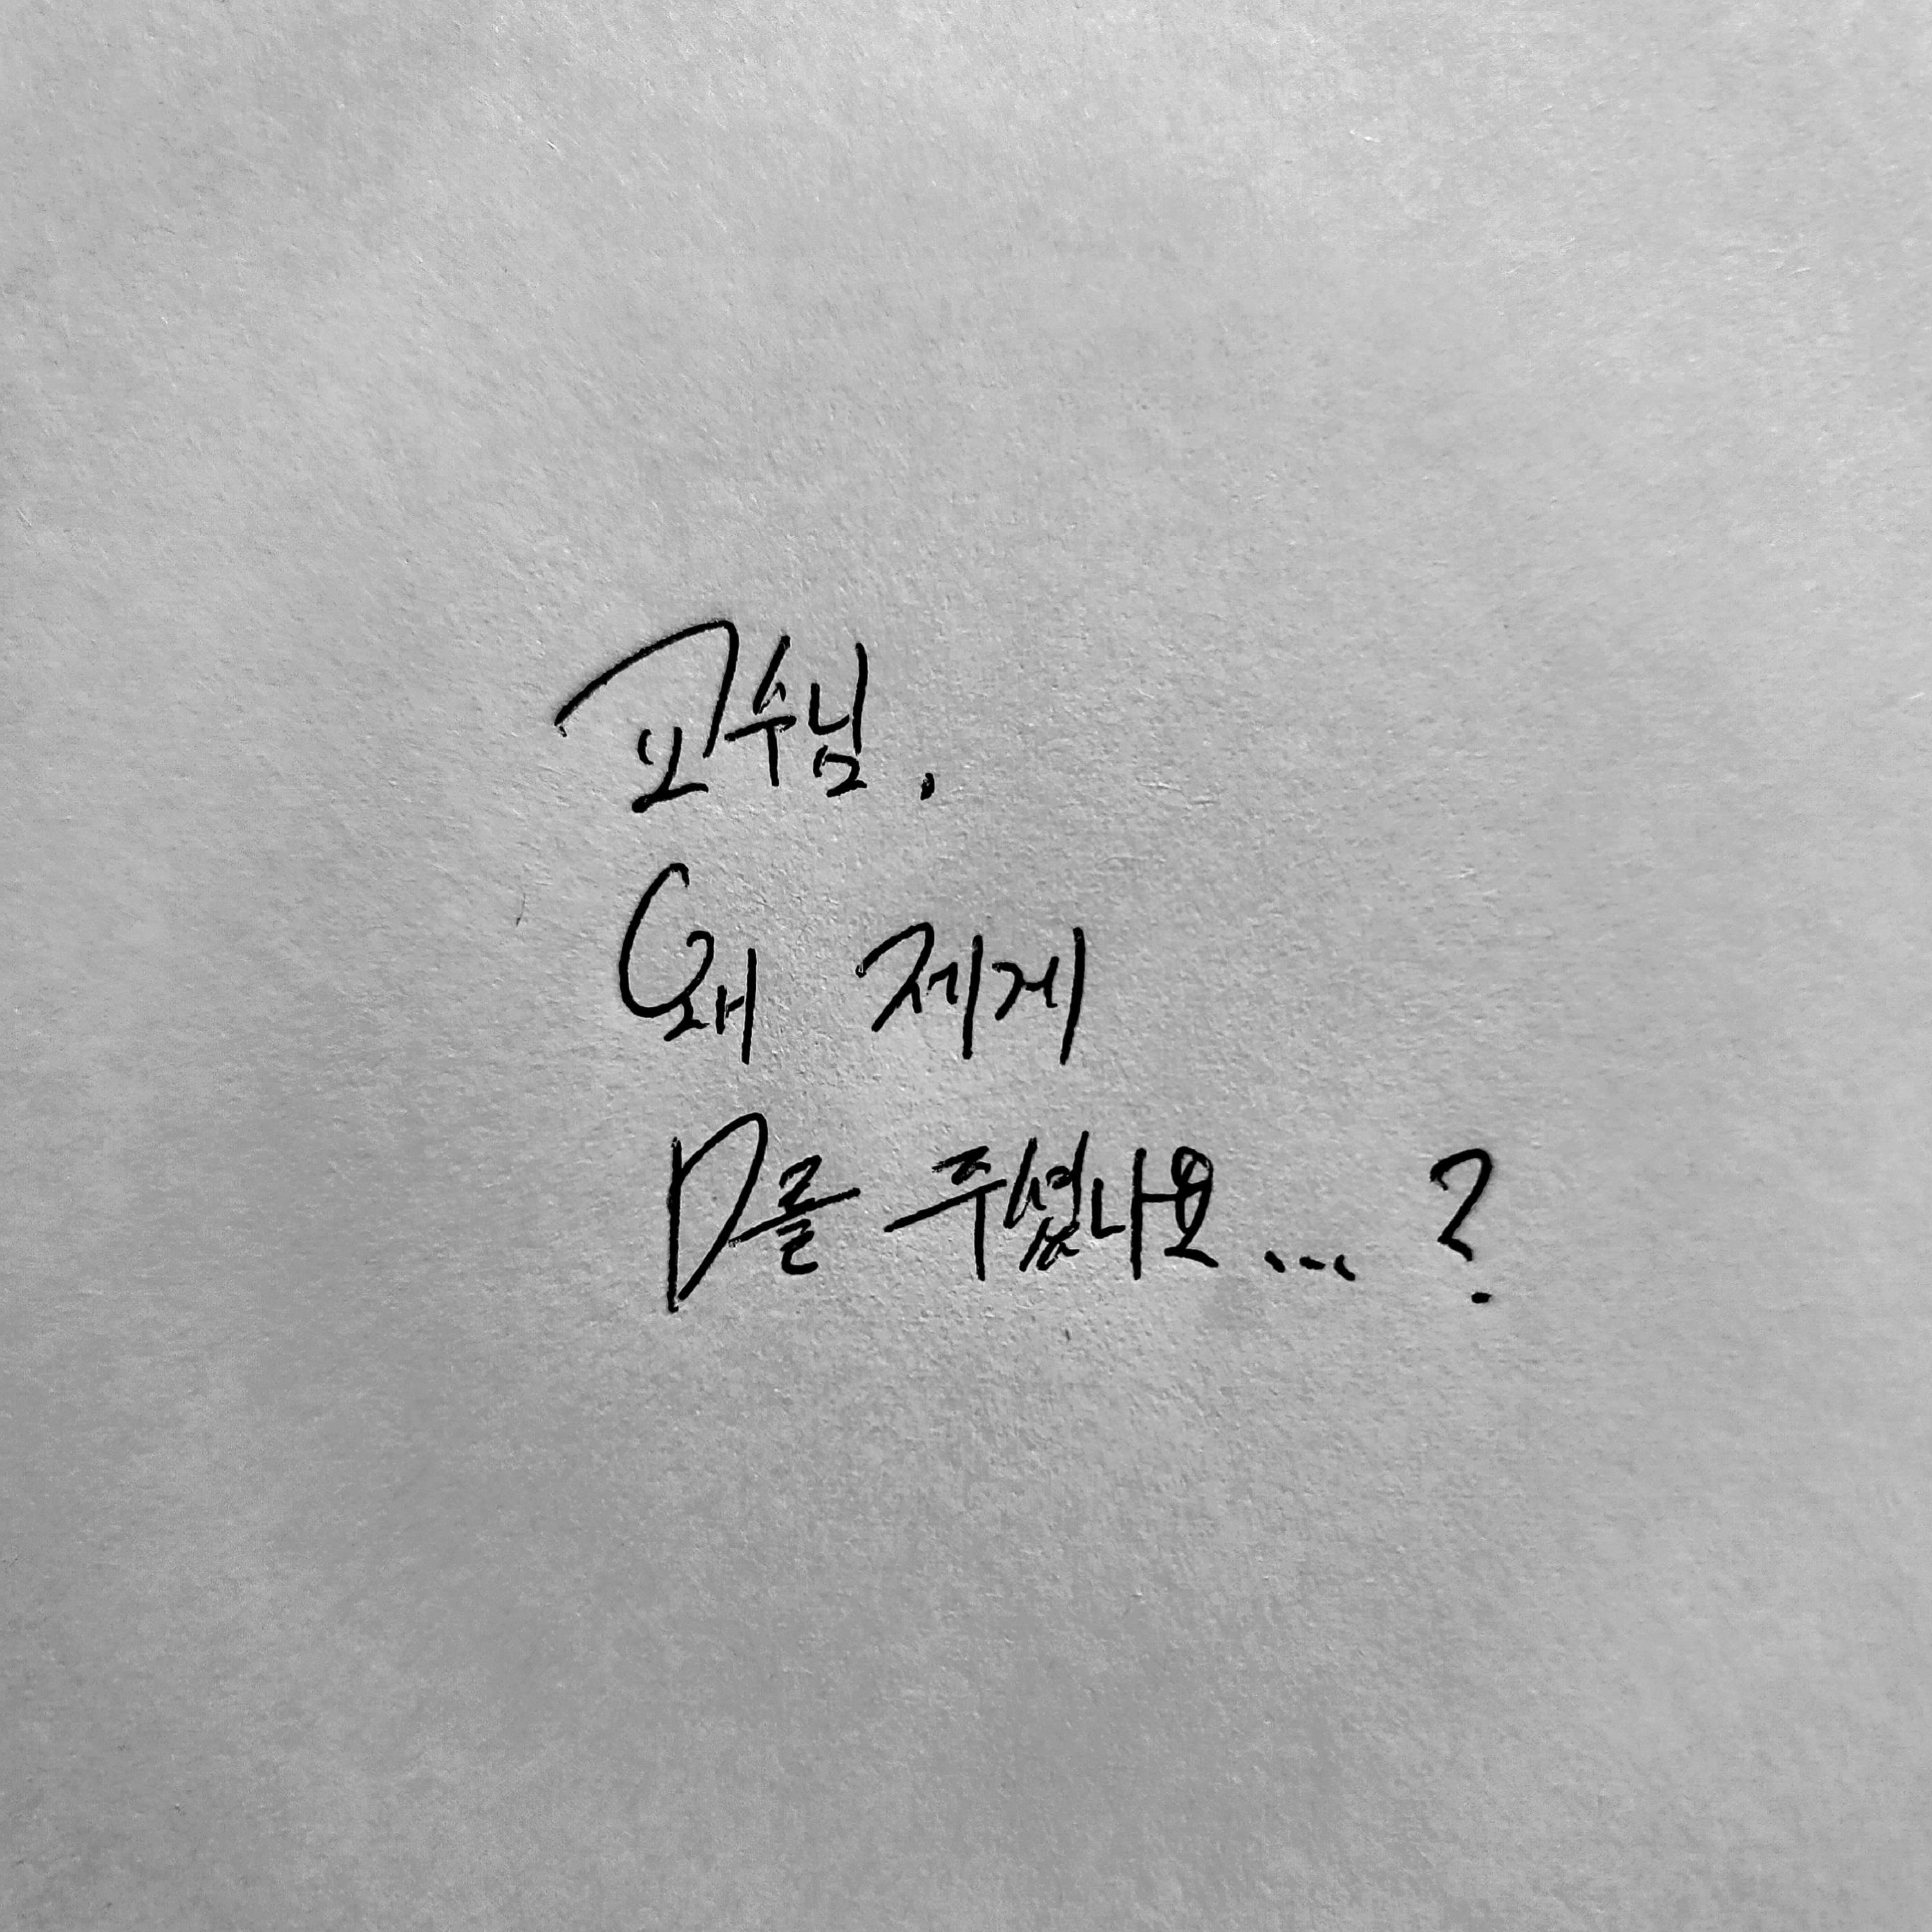 교수님.
왜 제게
D를 주셨나요... ?